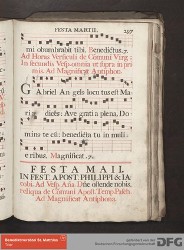 FESTA MARTII. 297
mi obumbrabit tibi. Benedictus.
Ad Horas Versiculi de Communi Virg:
In secundis Vesp. omnia ut supra in pri
mis. Ad Magnificat Antiphon.
Gabriel Angelus locutus est Ma
riae dicens: Ave gratia plena, Do
minus tecum: benedicta tu in muli
eribus. Magnificat.
FESTA MAII.
IN FESTO APOST. PHILIPPI & IA
cobi. Ad Vesp. Aña. Dne ostende nobis,
reliqua de Communi Apost. Temp. Pasch.
Ad Magnificat Antiphona.
DFG